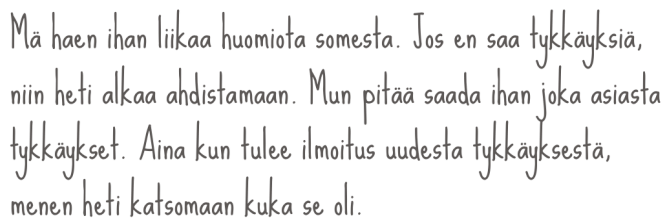 Mä haen ihan liikaa huomiota somesta. Jos en saa tykkäyksiä,
niin heti alkaa ahdistamaan. Mun pitää saada ihan joka asiasta
tykkäykset. Aina kun tulee ilmoitus uudesta tykkäyksestä,
menen heti katsomaan kuka se oli.